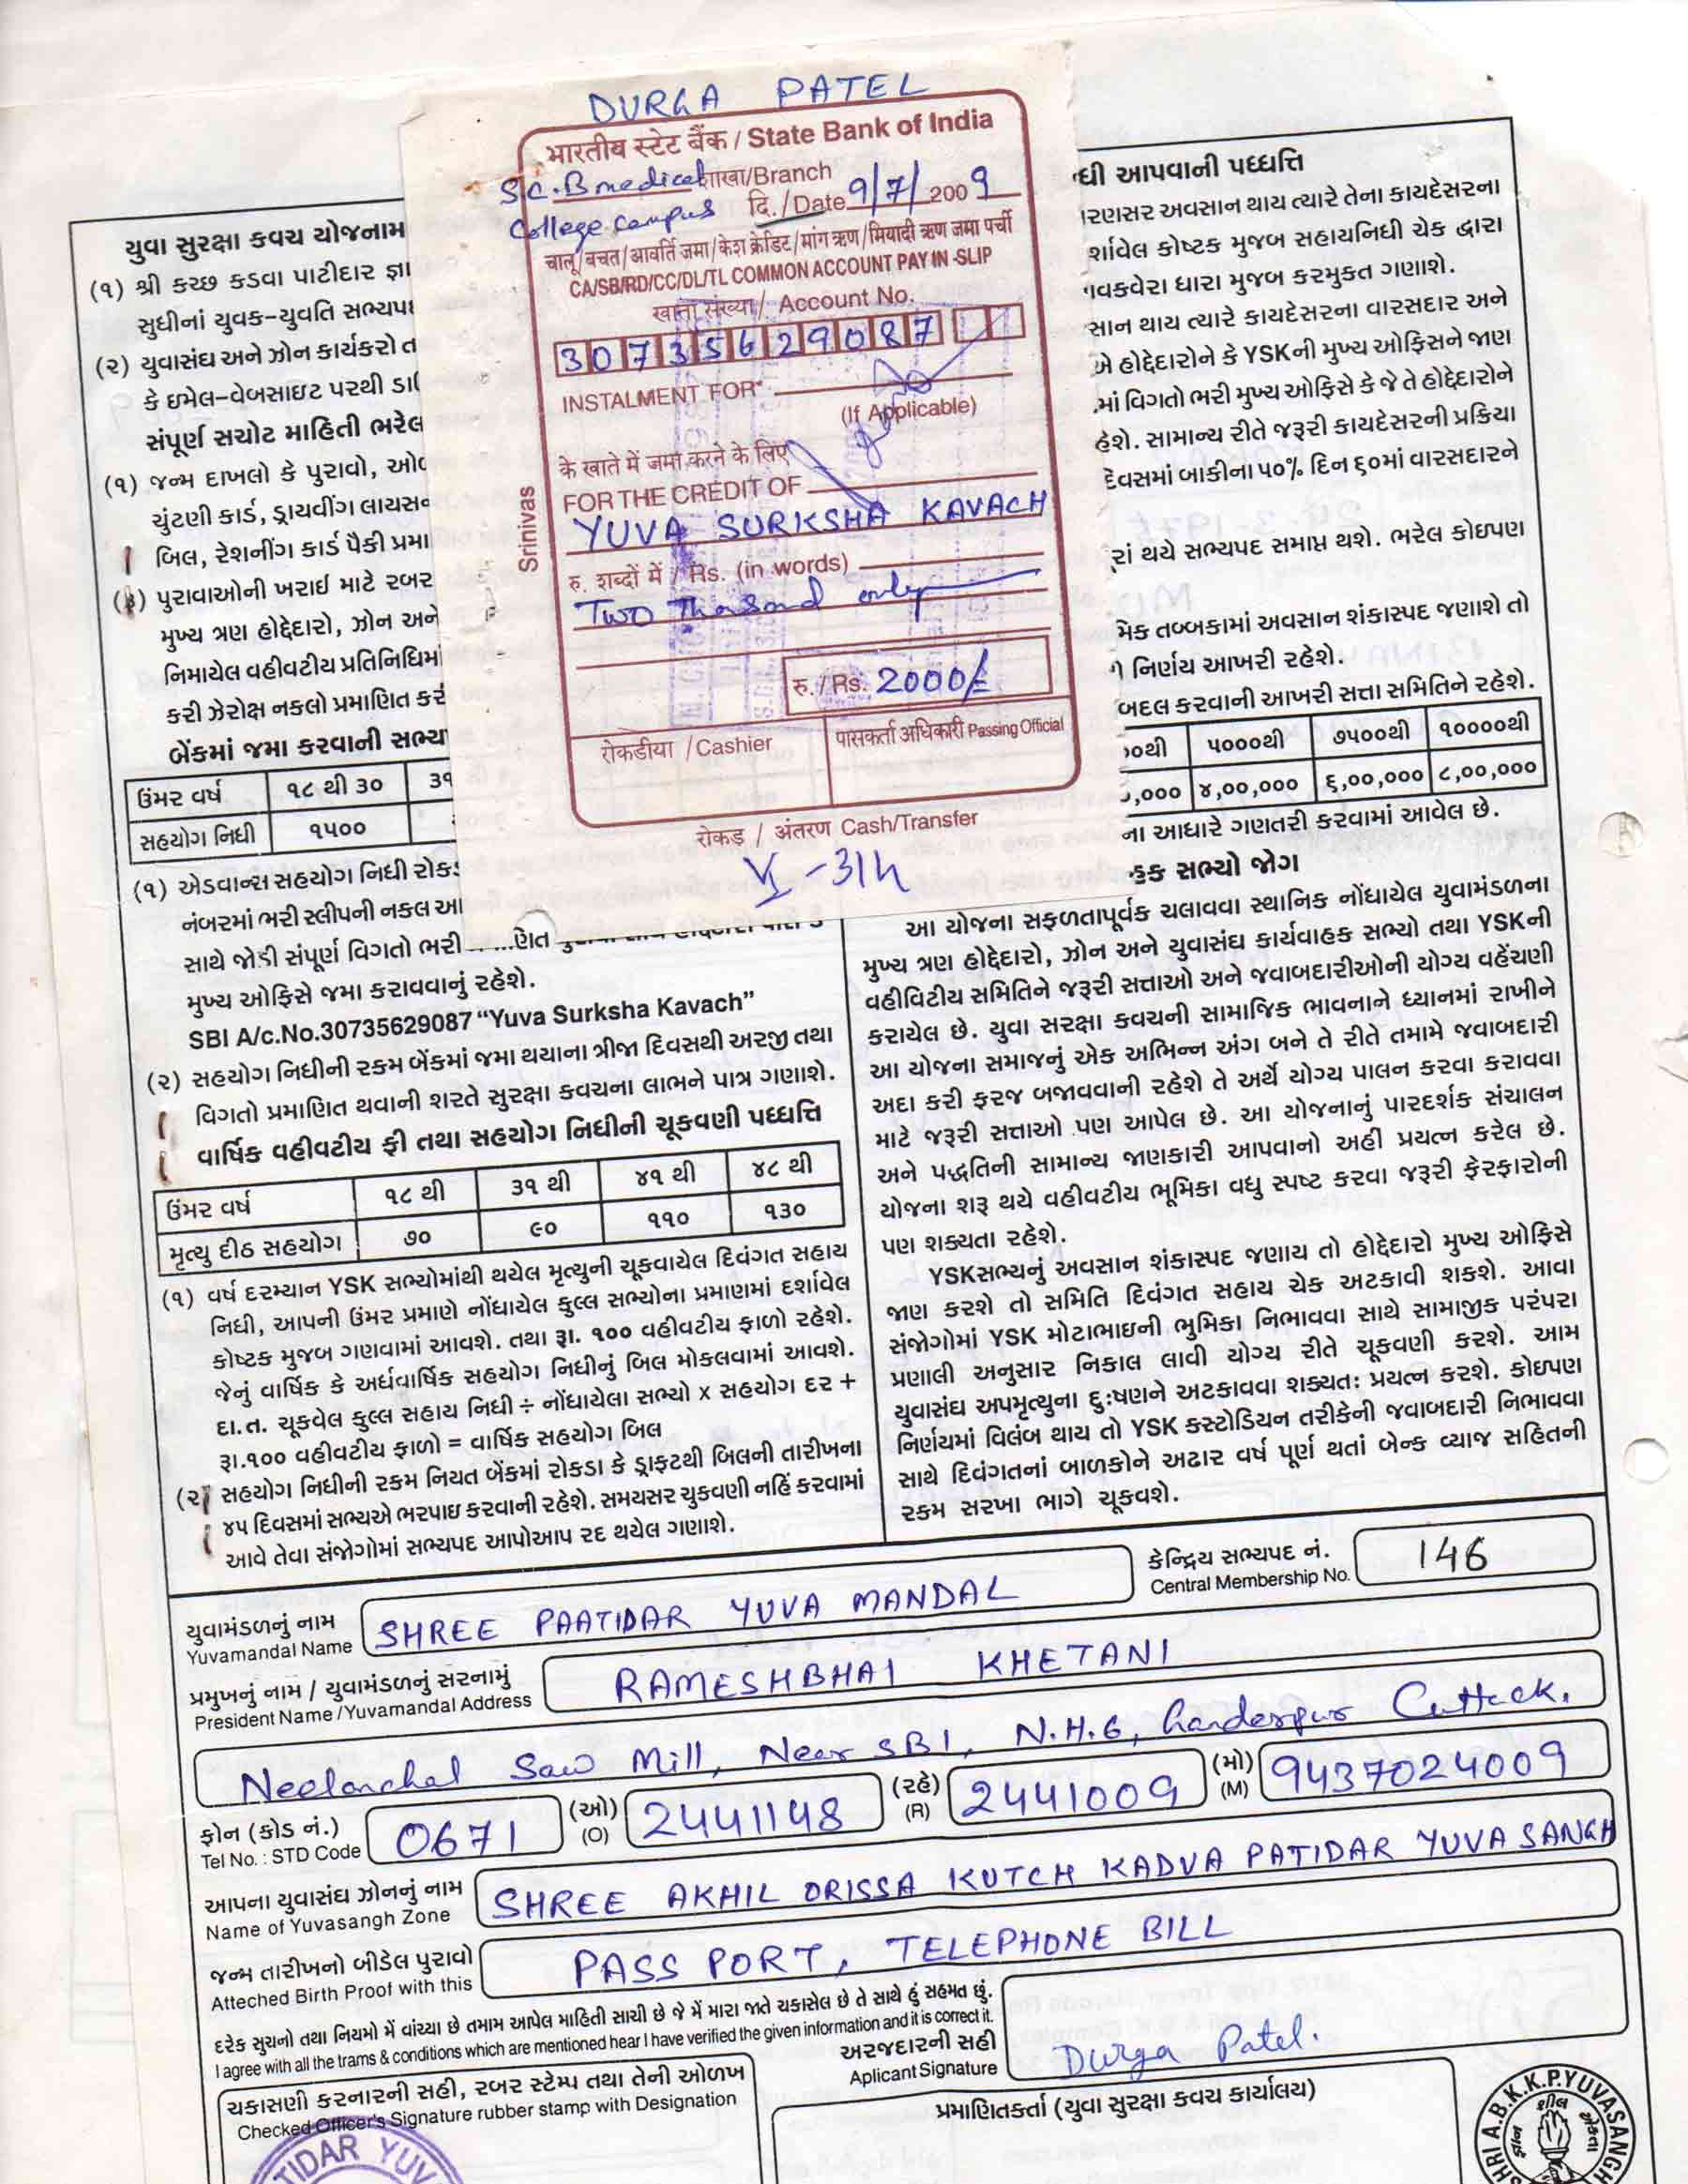 DURGA PATEL
भारतीय स्टेट बैंक / State Bank of India
S.C.B medical शाखा/Branch
College campus दि./Date 9/7/2009
चालू/बचत/आवर्ति जमा/केश क्रेडिट/मांग ऋण/मियादी ऋण जमा पर्ची
CA/SB/RD/CC/DL/TL COMMON ACCOUNT PAY IN-SLIP
खाता संख्या/. Account No.
30735629087
INSTALMENT FOR*
(If Applicable)
के खाते में जमा करने के लिए
FOR THE CREDIT OF
YUVA SURKSHA KAVACH
रु. शब्दों में / Rs. (in words)
Two Thousand only
रु./Rs. 2000/-
रोकडीया /Cashier
पासकर्ता अधिकारी Passing Official
रोकड़ / अंतरण Cash/Transfer
Srinivas
યુવા સુરક્ષા કવચ યોજનામ
(૧) શ્રી કચ્છ કડવા પાટીદાર જ્ઞા
સુધીનાં યુવક-યુવતિ સભ્યપ
(૨) યુવાસંઘ અને ઝોન કાર્યકરો ત
કે ઇમેલ-વેબસાઇટ પરથી ડા
સંપૂર્ણ સચોટ માહિતી ભરેલ
(૧) જન્મ દાખલો કે પુરાવો, ઓ
ચુંટણી કાર્ડ, ડ્રાયવીંગ લાયસ
બિલ, રેશનીંગ કાર્ડ પૈકી પ્રમા
પુરાવાઓની ખરાઈ માટે રબર
મુખ્ય ત્રણ હોદ્દેદારો, ઝોન અને
નિમાયેલ વહીવટીય પ્રતિનિધિમ
કરી ઝેરોક્ષ નકલો પ્રમાણિત કર
બેંકમાં જમા કરવાની સભ્ય
ઉંમર વર્ષ ૧૮ થી ૩૦ ૩૧
સહયોગ નિધી ૧૫૦૦
(૧) એડવાન્સ સહયોગ નિધી રોક
નંબરમાં ભરી સ્લીપની નકલ આ
સાથે જોડી સંપૂર્ણ વિગતો ભરી
મુખ્ય ઓફિસે જમા કરાવવાનું રહેશે.
SBI A/c.No.30735629087 “Yuva Surksha Kavach”
(૨) સહયોગ નિધીની રકમ બેંકમાં જમા થયાના ત્રીજા દિવસથી અરજી તથા
વિગતો પ્રમાણિત થવાની શરતે સુરક્ષા કવચના લાભને પાત્ર ગણાશે.
વાર્ષિક વહીવટીય ફી તથા સહયોગ નિધીની ચૂકવણી પધ્ધતિ
ઉંમર વર્ષ ૧૮ થી ૩૧ થી ૪૧ થી ૪૮ થી
મૃત્યુ દીઠ સહયોગ ૭૦ ૯૦ ૧૧૦ ૧૩૦
(૧) વર્ષ દરમ્યાન YSK સભ્યોમાંથી થયેલ મૃત્યુની ચૂકવાયેલ દિવંગત સહાય
નિધી, આપની ઉંમર પ્રમાણે નોંધાયેલ કુલ્લ સભ્યોના પ્રમાણમાં દર્શાવેલ
કોષ્ટક મુજબ ગણવામાં આવશે. તથા રૂા. ૧૦૦ વહીવટીય ફાળો રહેશે.
જેનું વાર્ષિક કે અર્ધવાર્ષિક સહયોગ નિધીનું બિલ મોકલવામાં આવશે.
દા.ત. ચૂકવેલ કુલ્લ સહાય નિધી ÷ નોંધાયેલા સભ્યો x સહયોગ દર +
રૂા.૧૦૦ વહીવટીય ફાળો = વાર્ષિક સહયોગ બિલ
(૨) સહયોગ નિધીની રકમ નિયત બેંકમાં રોકડા કે ડ્રાફટથી બિલની તારીખના
૪૫ દિવસમાં સભ્યએ ભરપાઇ કરવાની રહેશે. સમયસર ચુકવણી નહિં કરવામાં
આવે તેવા સંજોગોમાં સભ્યપદ આપોઆપ રદ થયેલ ગણાશે.
ધી આપવાની પધ્ધતિ
રણસર અવસાન થાય ત્યારે તેના કાયદેસરના
ર્શાવેલ કોષ્ટક મુજબ સહાયનિધી ચેક દ્વારા
વકવેરા ધારા મુજબ કરમુકત ગણાશે.
સાન થાય ત્યારે કાયદેસરના વારસદાર અને
એ હોદ્દેદારોને કે YSKની મુખ્ય ઓફિસને જાણ
માં વિગતો ભરી મુખ્ય ઓફિસે કે જે તે હોદ્દેદારોને
હેશે. સામાન્ય રીતે જરૂરી કાયદેસરની પ્રક્રિયા
દિવસમાં બાકીના ૫૦% દિન ૬૦માં વારસદારને
રાં થયે સભ્યપદ સમાપ્ત થશે. ભરેલ કોઇપણ
મિક તબ્બકામાં અવસાન શંકાસ્પદ જણાશે તો
નિર્ણય આખરી રહેશે.
બદલ કરવાની આખરી સત્તા સમિતિને રહેશે.
૦૦થી ૫૦૦૦થી ૭૫૦૦થી ૧૦૦૦૦થી
,૦૦૦ ૪,૦૦,૦૦૦ ૬,૦૦,૦૦૦ ૮,૦૦,૦૦૦
ના આધારે ગણતરી કરવામાં આવેલ છે.
હક સભ્યો જોગ
આ યોજના સફળતાપૂર્વક ચલાવવા સ્થાનિક નોંધાયેલ યુવામંડળના
મુખ્ય ત્રણ હોદ્દેદારો, ઝોન અને યુવાસંઘ કાર્યવાહક સભ્યો તથા YSKની
વહીવિટીય સમિતિને જરૂરી સત્તાઓ અને જવાબદારીઓની યોગ્ય વહેંચણી
કરાયેલ છે. યુવા સરક્ષા કવચની સામાજિક ભાવનાને ધ્યાનમાં રાખીને
આ યોજના સમાજનું એક અભિન્ન અંગ બને તે રીતે તમામે જવાબદારી
અદા કરી ફરજ બજાવવાની રહેશે તે અર્થે યોગ્ય પાલન કરવા કરાવવા
માટે જરૂરી સત્તાઓ પણ આપેલ છે. આ યોજનાનું પારદર્શક સંચાલન
અને પદ્ધતિની સામાન્ય જાણકારી આપવાનો અહીં પ્રયત્ન કરેલ છે.
યોજના શરૂ થયે વહીવટીય ભૂમિકા વધુ સ્પષ્ટ કરવા જરૂરી ફેરફારોની
પણ શક્યતા રહેશે.
YSKસભ્યનું અવસાન શંકાસ્પદ જણાય તો હોદ્દેદારો મુખ્ય ઓફિસે
જાણ કરશે તો સમિતિ દિવંગત સહાય ચેક અટકાવી શકશે. આવા
સંજોગોમાં YSK મોટાભાઇની ભુમિકા નિભાવવા સાથે સામાજીક પરંપરા
પ્રણાલી અનુસાર નિકાલ લાવી યોગ્ય રીતે ચૂકવણી કરશે. આમ
યુવાસંઘ અપમૃત્યુના દુઃષણને અટકાવવા શક્યતઃ પ્રયત્ન કરશે. કોઇપણ
નિર્ણયમાં વિલંબ થાય તો YSK કસ્ટોડિયન તરીકેની જવાબદારી નિભાવવા
સાથે દિવંગતનાં બાળકોને અઢાર વર્ષ પૂર્ણ થતાં બેન્ક વ્યાજ સહિતની
રકમ સરખા ભાગે ચૂકવશે.
કેન્દ્રિય સભ્યપદ નં.
Central Membership No. 146
યુવામંડળનું નામ
Yuvamandal Name SHREE PAATIDAR YUVA MANDAL
પ્રમુખનું નામ / યુવામંડળનું સરનામું
President Name /Yuvamandal Address RAMESHBHAI KHETANI
Neelanchal Saw Mill, Near SBI, N.H.6, Canderpur Cuttack.
ફોન (કોડ નં.)
Tel No. : STD Code 0671 (ઓ) (O) 2441148 (રહે) (R) 2441009 (મો) (M) 9437024009
આપના યુવાસંઘ ઝોનનું નામ
Name of Yuvasangh Zone SHREE AKHIL ORISSA KUTCH KADVA PATIDAR YUVA SANGH
જન્મ તારીખનો બીડેલ પુરાવો
Atteched Birth Proof with this PASS PORT, TELEPHONE BILL
દરેક સુચનો તથા નિયમો મેં વાંચ્યા છે તમામ આપેલ માહિતી સાચી છે જે મેં મારા જાતે ચકાસેલ છે તે સાથે હું સહમત છું.
I agree with all the trams & conditions which are mentioned hear I have verified the given information and it is correct it.
અરજદારની સહી
Aplicant Signature Durga Patel.
ચકાસણી કરનારની સહી, રબર સ્ટેમ્પ તથા તેની ઓળખ
Checked Officer's Signature rubber stamp with Designation
પ્રમાણિતકર્તા (યુવા સુરક્ષા કવચ કાર્યાલય)
TIDAR YUV
SHRI A.B.K.K.P.YUVASANGH
શીલ
જ્ઞાન
એકતા